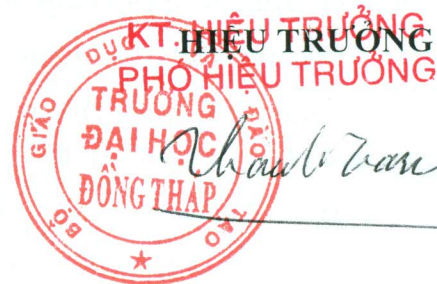 HIỆU TRƯỞNG
KT. HIỆU TRƯỞNG
PHÓ HIỆU TRƯỞNG
BỘ GIÁO DỤC VÀ ĐÀO TẠO
TRƯỜNG
ĐẠI HỌC
ĐỒNG THÁP